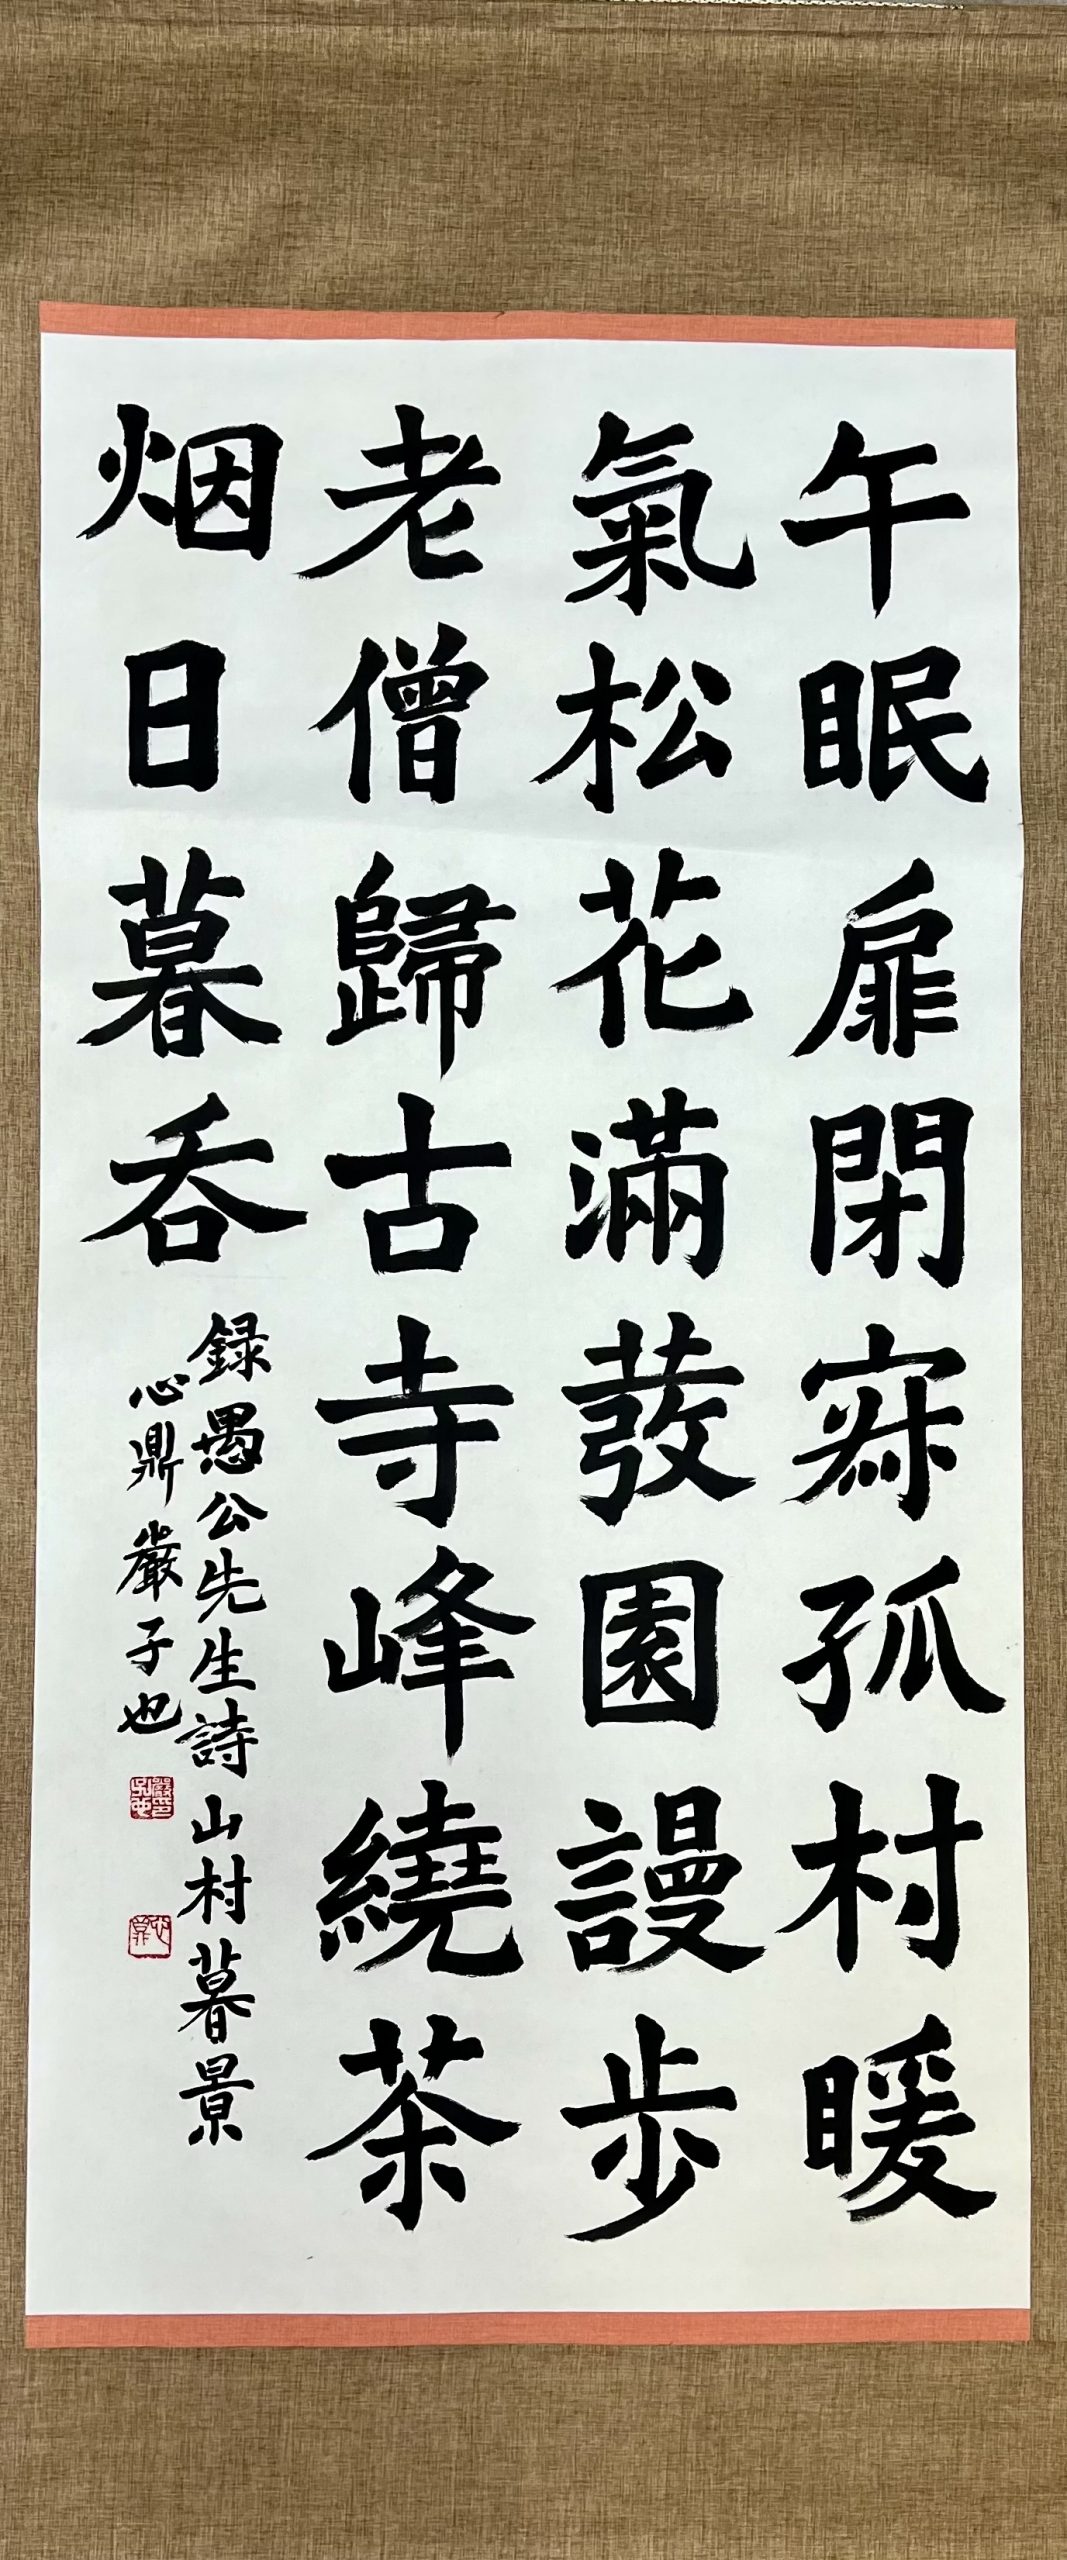 午眠扉閉寂孤村暖
氣松花滿發園謾步
老僧歸古寺峰繞茶
烟日暮呑
録愚公先生詩山村暮景
心鼎嚴子也